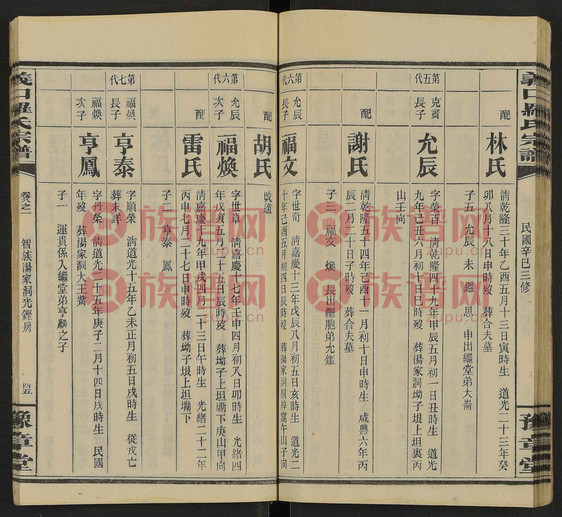 義口羅氏宗譜
民國辛巳三修
豫章堂
配
林氏
清乾隆三十年乙酉五月十三日寅時生 道光二十三年癸
卯八月十八日申時歿 葬合夫墓
子五 允辰 未 繼 思 申出繼堂弟大崙
第五代
克賓
長子
允辰
字榮百 清乾隆四十九年甲辰五月初一日丑時生 道光
九年己丑六月初十日巳時歿 葬湯家洞坳子垠上坦裏丙
山壬向
配
謝氏
清乾隆五十四年己酉十一月初十日申時生 咸豐六年丙
辰二月二十日子時歿 葬合夫墓
子三 福文 煥 長出繼胞弟允繼
第六代
長子
福文
字世奇 清嘉慶十三年戊辰八月初五日亥時生 道光二
十年己酉五月初四日辰時歿 葬湯家洞
午山子向
配
胡氏
改適
第六代
允辰
次子
福煥
字世章 清嘉慶十七年壬申四月初八日卯時生 光緒四
年戊寅八月二十五日辰時歿 葬坳子垠上坦墈下庚山甲向
配
雷氏
清嘉慶十九年甲戌四月二十三日午時生 光緒二十二年
丙申七月二十七日申時歿 葬坳子垠上坦墈下
子二 亨泰 鳳
第七代
福煥
長子
亨泰
字順榮 清道光十五年乙未正月初五日戌時生 從戎亡
葬未詳
福煥
次子
亨鳳
字丹榮 清道光二十五年庚子二月十四日戌時生 民國
年歿 葬湯家洞大王嵩
子一 運貴係入繼堂弟亨麟之子
義口羅氏宗譜
卷之一
智族湯家洞光鏗房
四五
豫章堂
族譜網